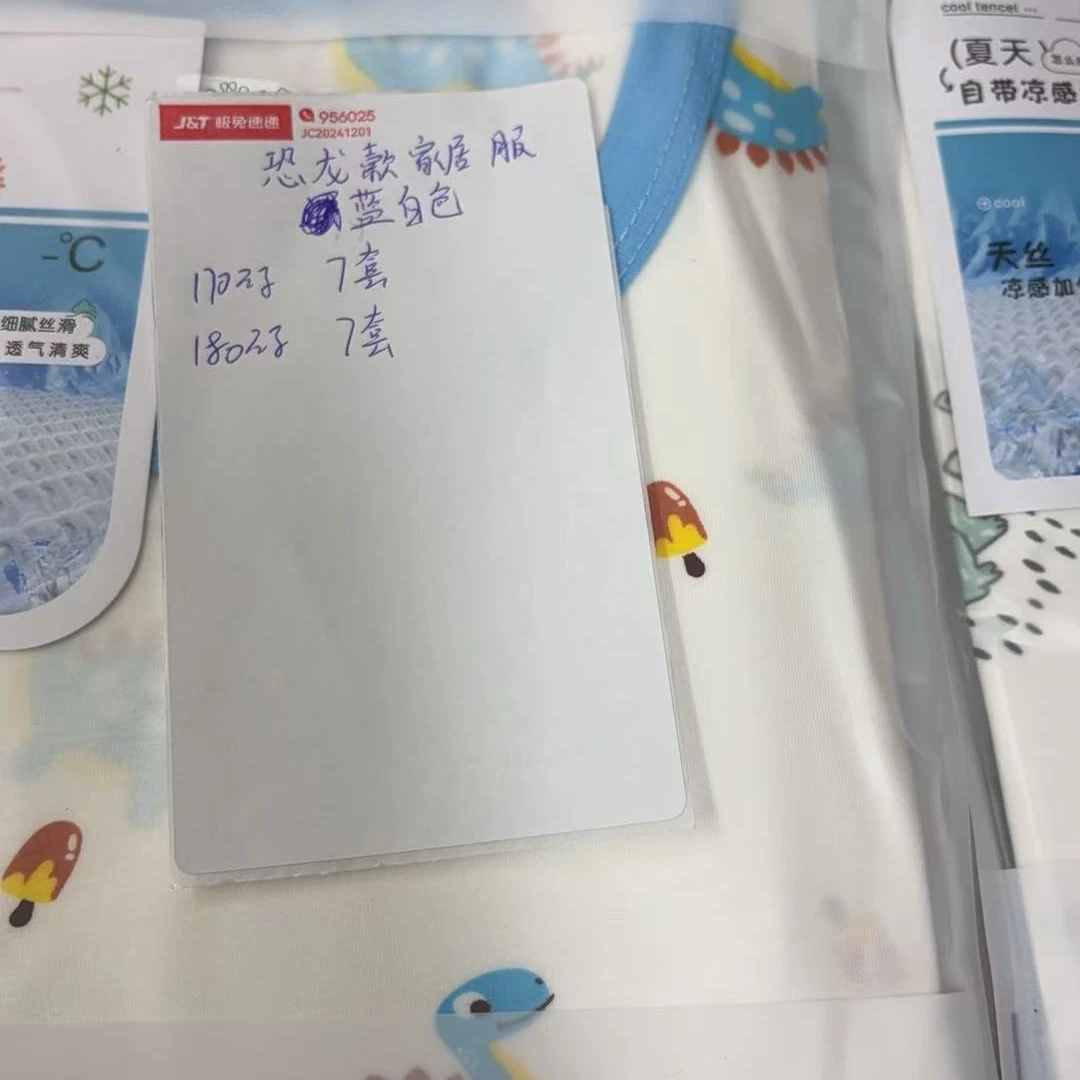 J&T 极兔速递 956025
JC20241201
恐龙款家居服
蓝白色
170码 7套
180码 7套
-℃
细腻丝滑
透气清爽
cool tencel
(夏天)
自带凉感
cool
天丝
凉感加